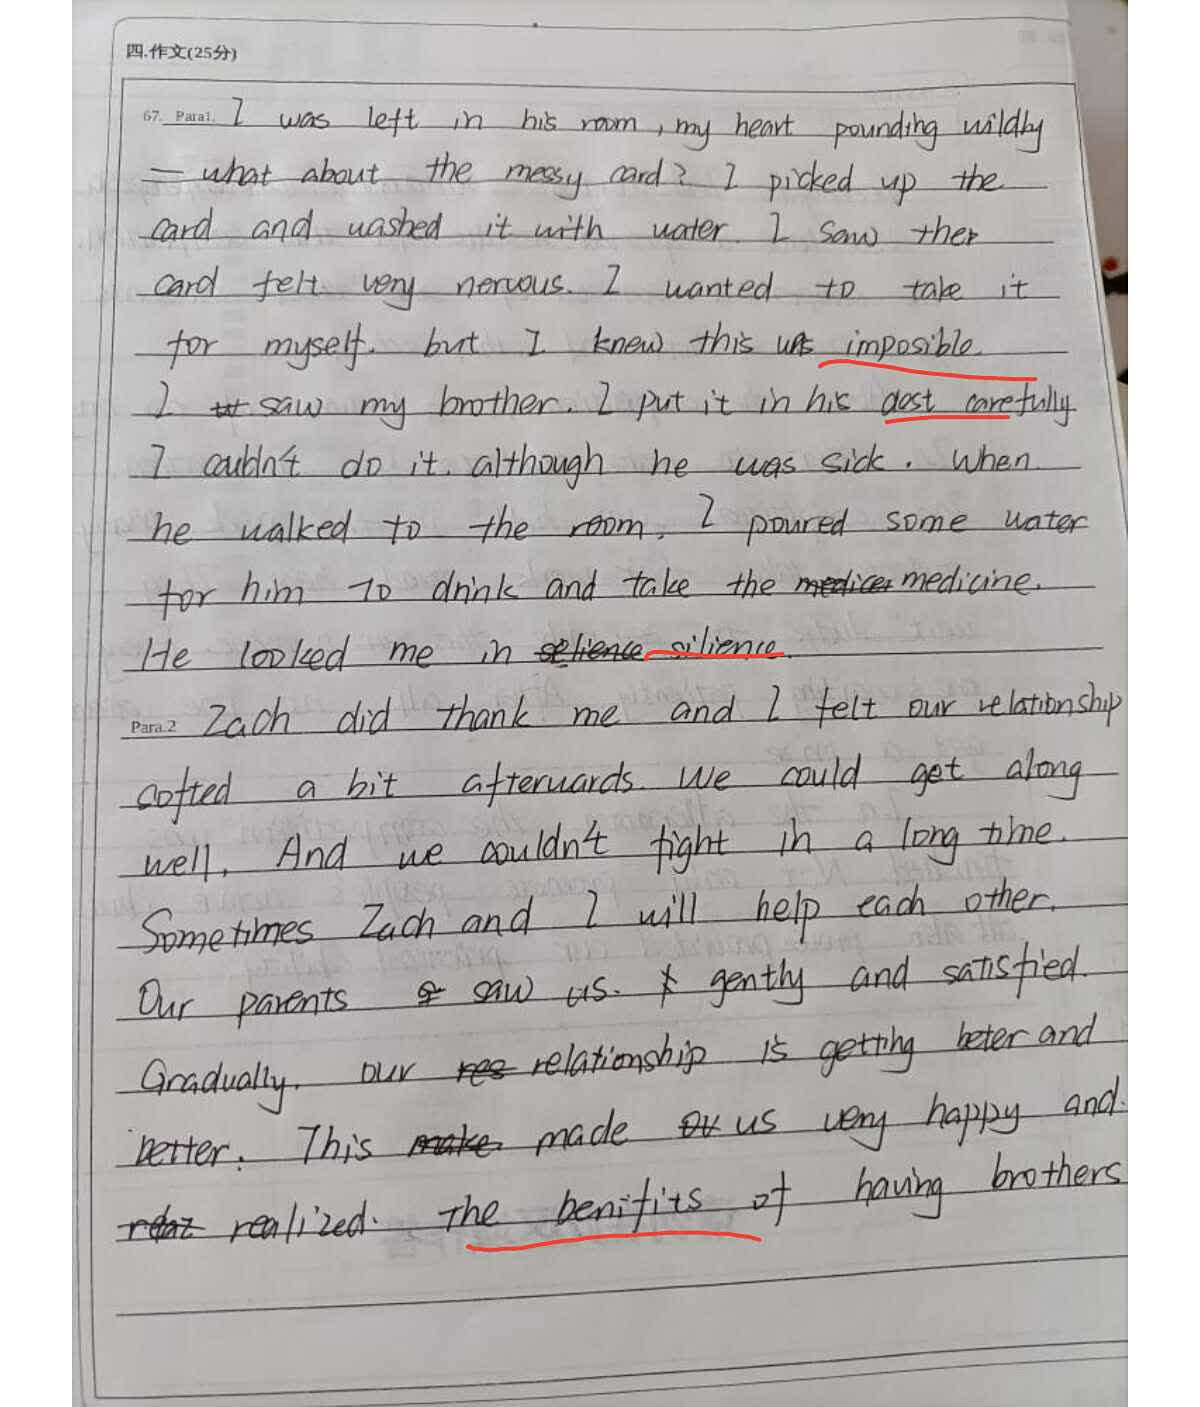 四.作文(25分)
67. Para1. I was left in his room, my heart pounding wildly
— what about the messy card? I picked up the
card and washed it with water. I saw ther
card felt very nervous. I wanted to take it
for myself. but I knew this was imposible.
I saw my brother. I put it in his dest carefully
I couldn't do it. although he was sick. When
he walked to the room, I poured some water
for him to drink and take the medicine.
He looked me in silience.
Para.2 Zach did thank me and I felt our relationship
softed a bit afterwards. We could get along
well. And we couldn't fight in a long time.
Sometimes Zach and I will help each other.
Our parents saw us. gently and satisfied.
Gradually. our relationship is getting beter and
better. This made us very happy and.
realized. The benifits of having brothers